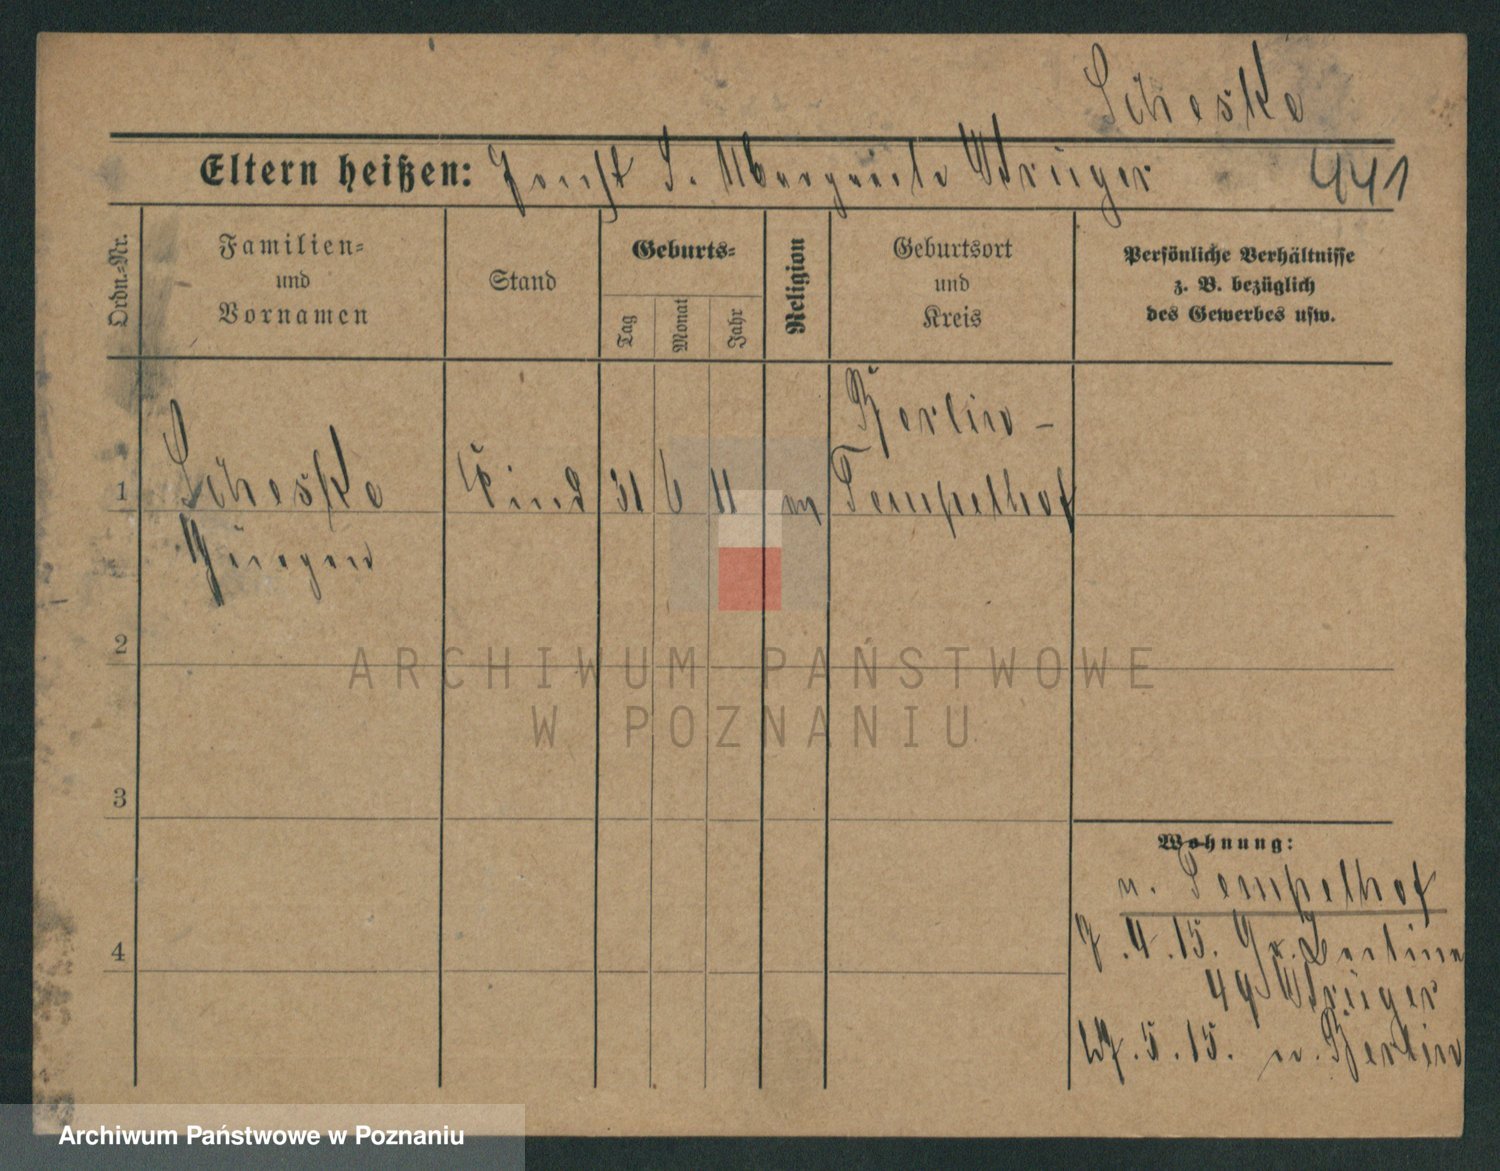 Scheske
Eltern heißen: Joseph S. Margarete Krüger 441
Ordn.-Nr.
Familien-
und
Vornamen
Stand
Geburts-
Tag
Monat
Jahr
Religion
Geburtsort
und
Kreis
Persönliche Verhältnisse
z. B. bezüglich
des Gewerbes usw.
Berlin -
1 Scheske Kind 31 6 11 Tempelhof
Jürgen
2
ARCHIWUM PAŃSTWOWE
W POZNANIU
3
Wohnung:
n. Tempelhof
4
7.4.15. Gr. Berliner
49 Krüger
27.5.15. n. Berlin
Archiwum Państwowe w Poznaniu